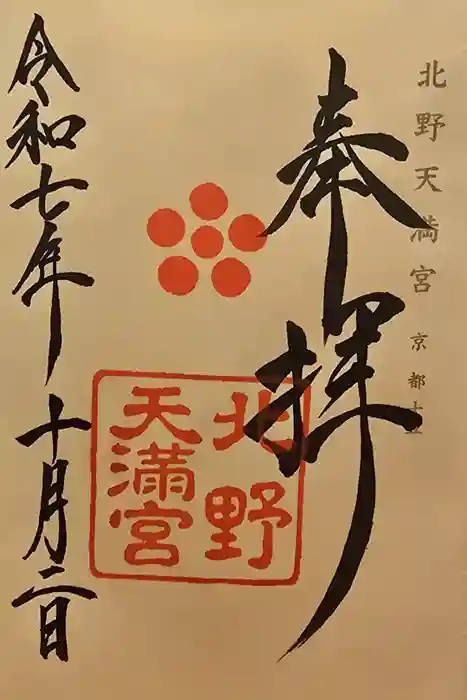 北野天満宮 京都十二
奉拝
北野
天満宮
令和七年 十月二日